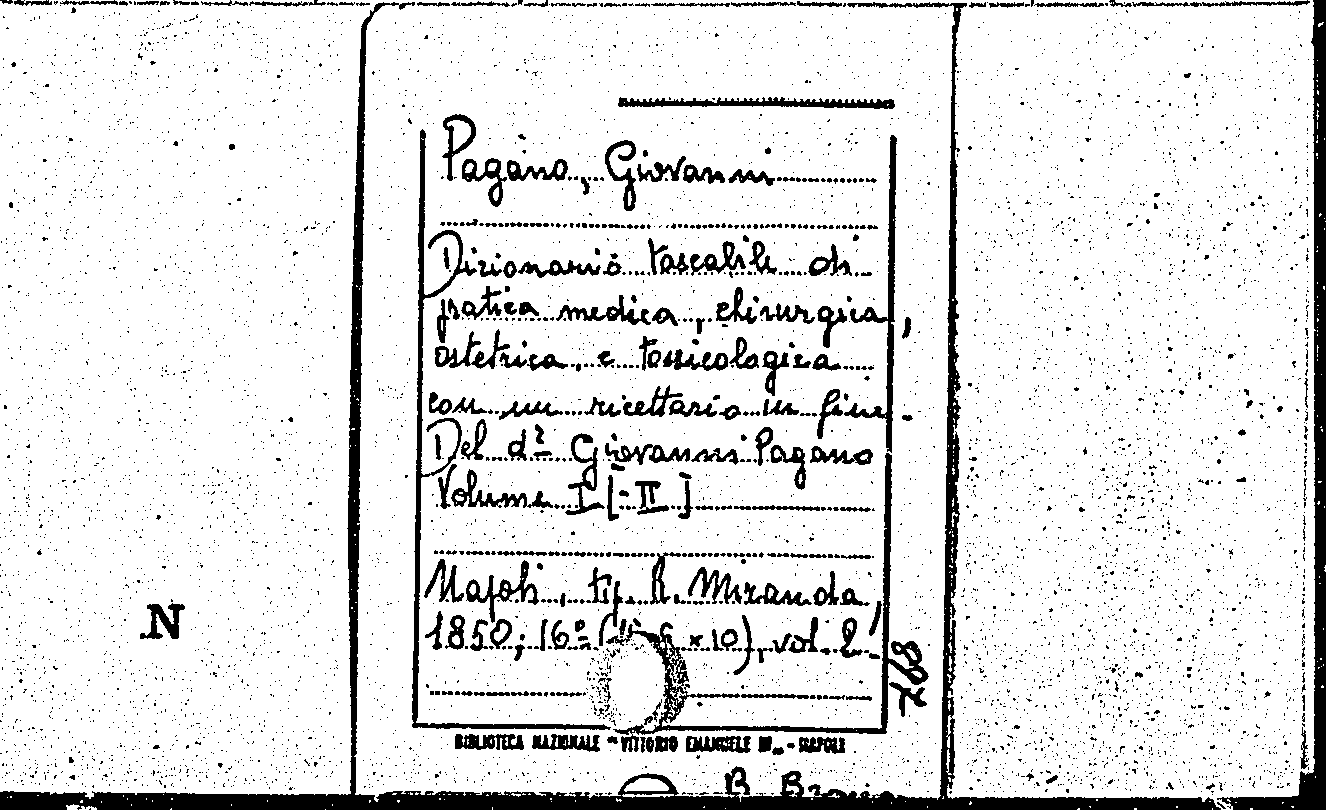 Pagano, Giovanni
Dizionario tascabile di
pratica medica, chirurgica,
ostetrica, e tossicologica
con un ricettario in fine.
Del dr Giovanni Pagano
Volume I [-II]
Napoli, tip. R. Miranda,
1850; 16º ( × 10), vol. 2.
768
BIBLIOTECA NAZIONALE "VITTORIO EMANUELE III" - NAPOLI
N
B.